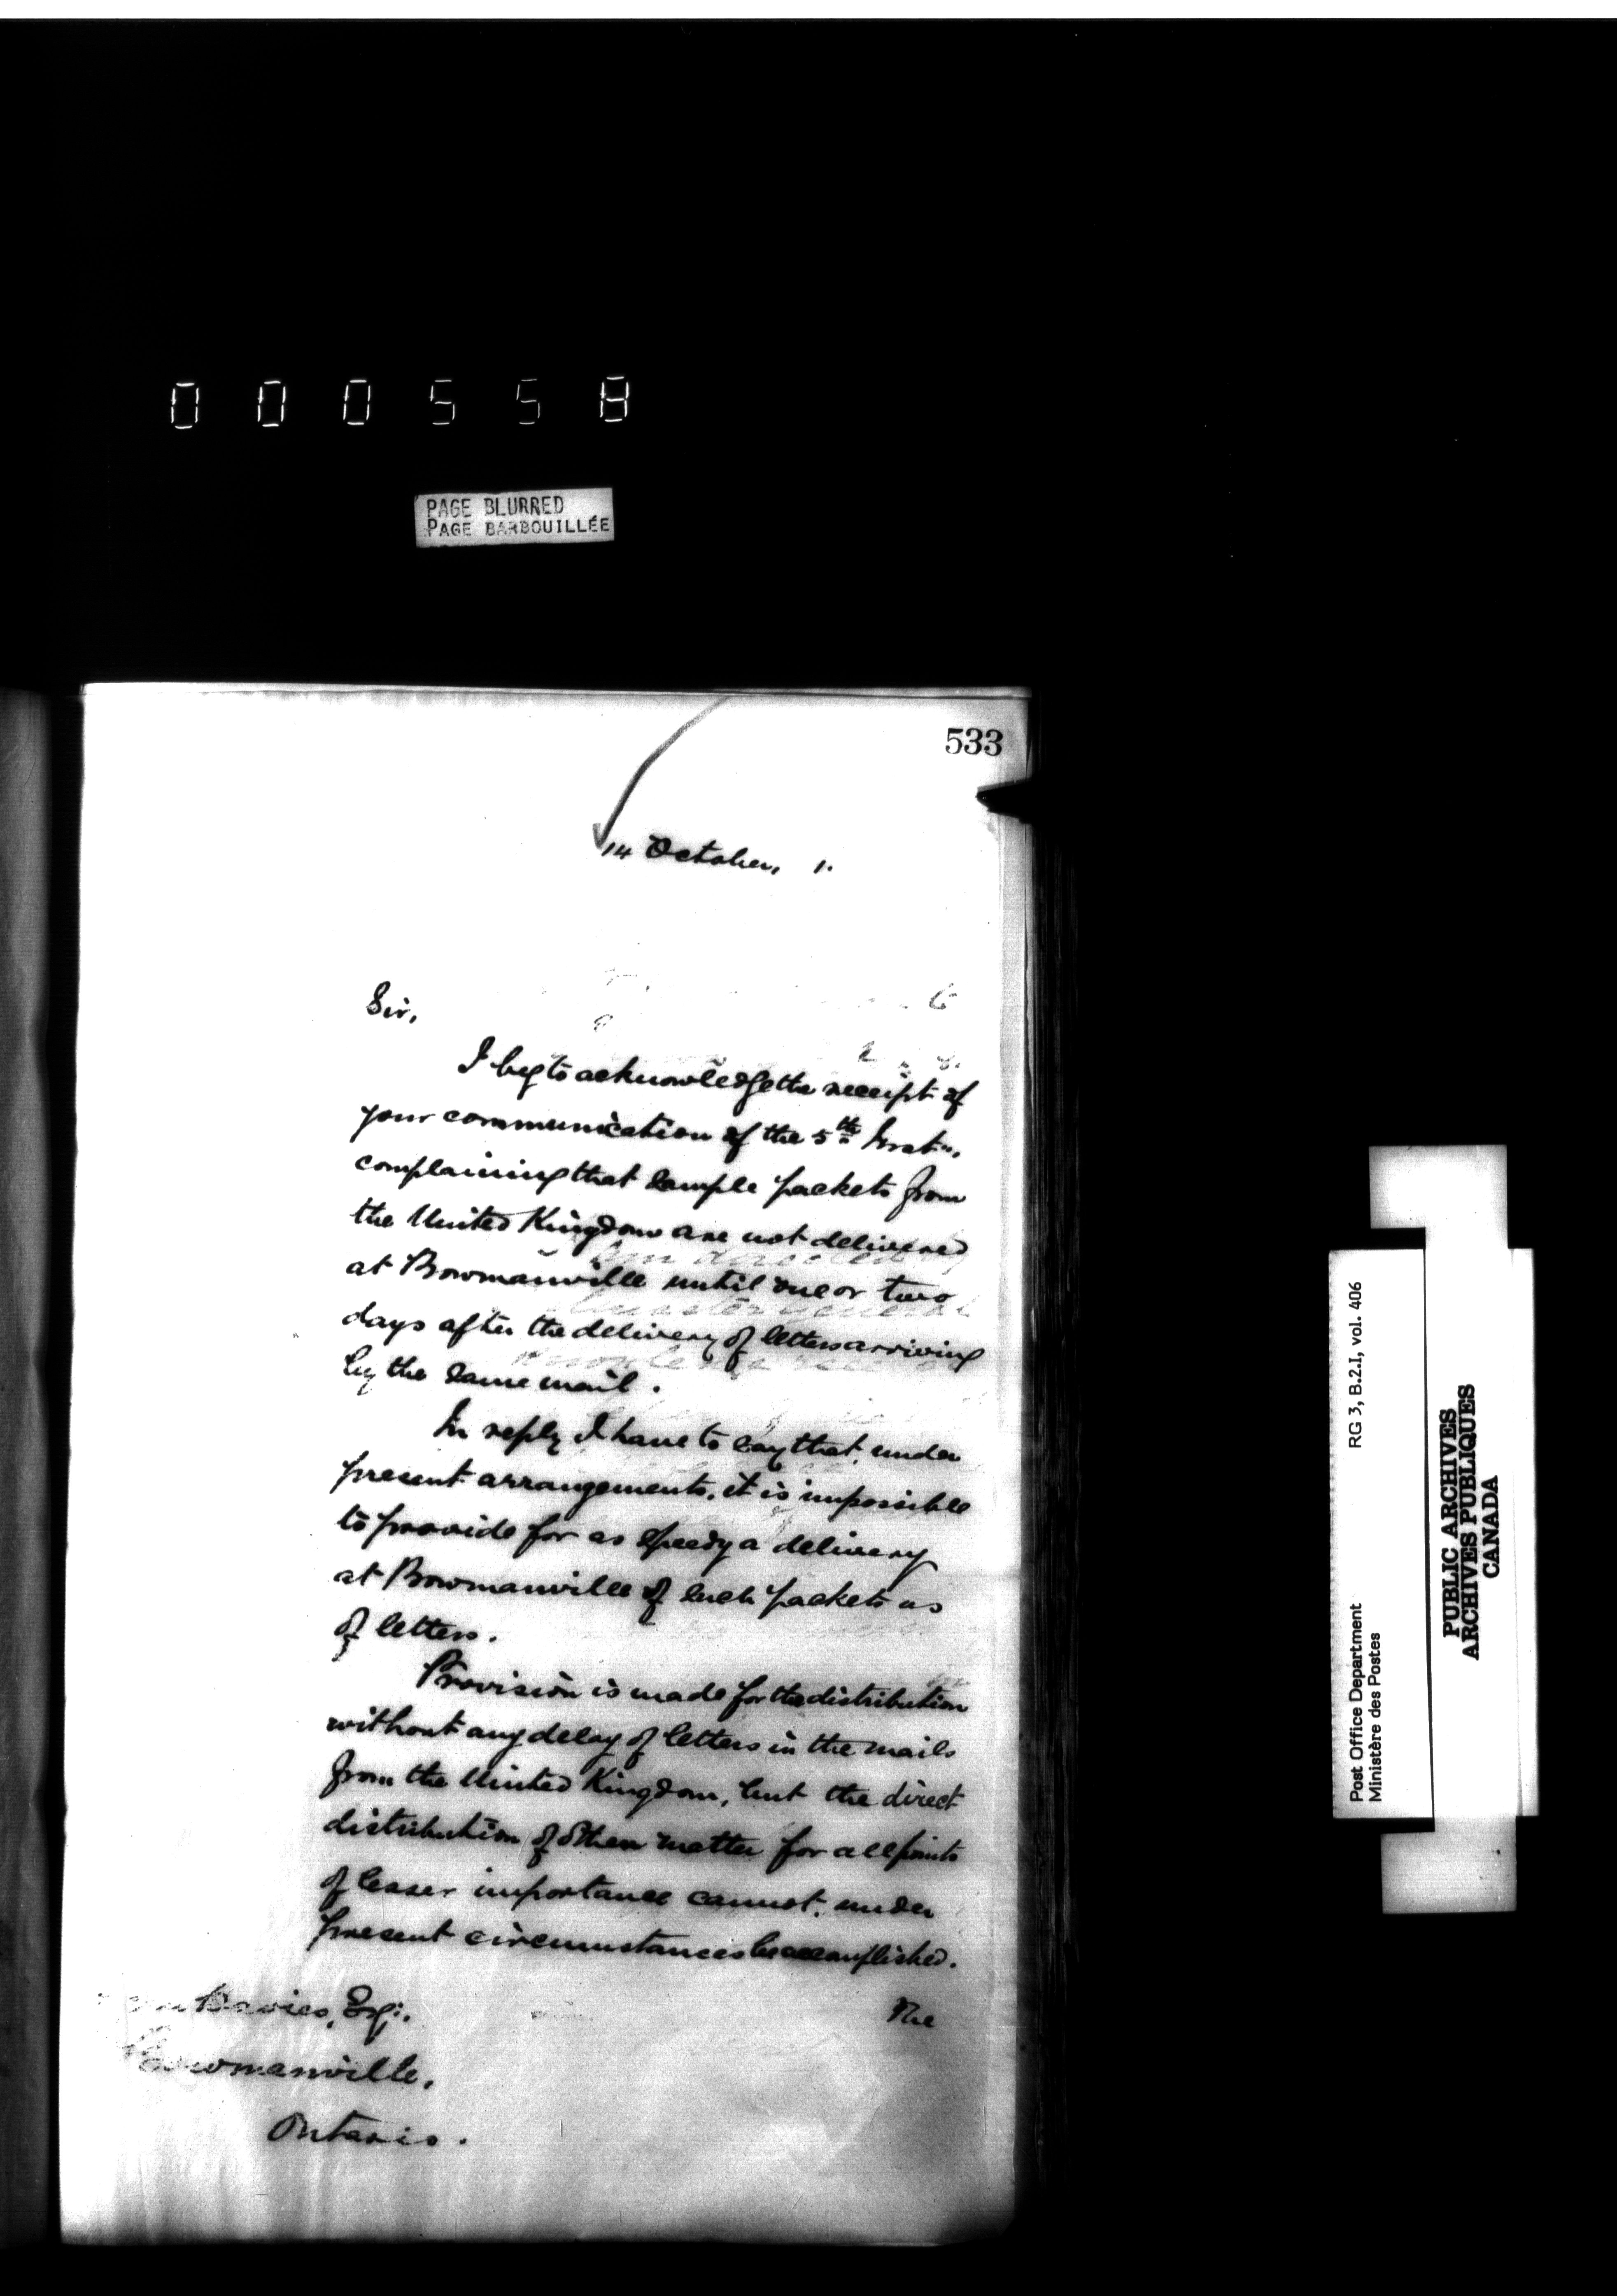 000558
PAGE BLURRED
PAGE BARBOUILLÉE
533
14 October, 1.
Sir,
I beg to acknowledge the receipt of
your communication of the 5th Inst.,
complaining that sample packets from
the United Kingdom are not delivered
at Bowmanville until one or two
days after the delivery of letters arriving
by the same mail.
In reply I have to say that, under
present arrangements, it is impossible
to provide for as speedy a delivery
at Bowmanville of such packets as
of letters.
Provision is made for the distribution
without any delay of letters in the mails
from the United Kingdom, but the direct
distribution of other matter for all points
of lesser importance cannot, under
present circumstances be accomplished.
The
Davies, Esq:.
Bowmanville,
Ontario.
Post Office Department RG 3, B.2.I, vol. 406
Ministère des Postes
PUBLIC ARCHIVES
ARCHIVES PUBLIQUES
CANADA